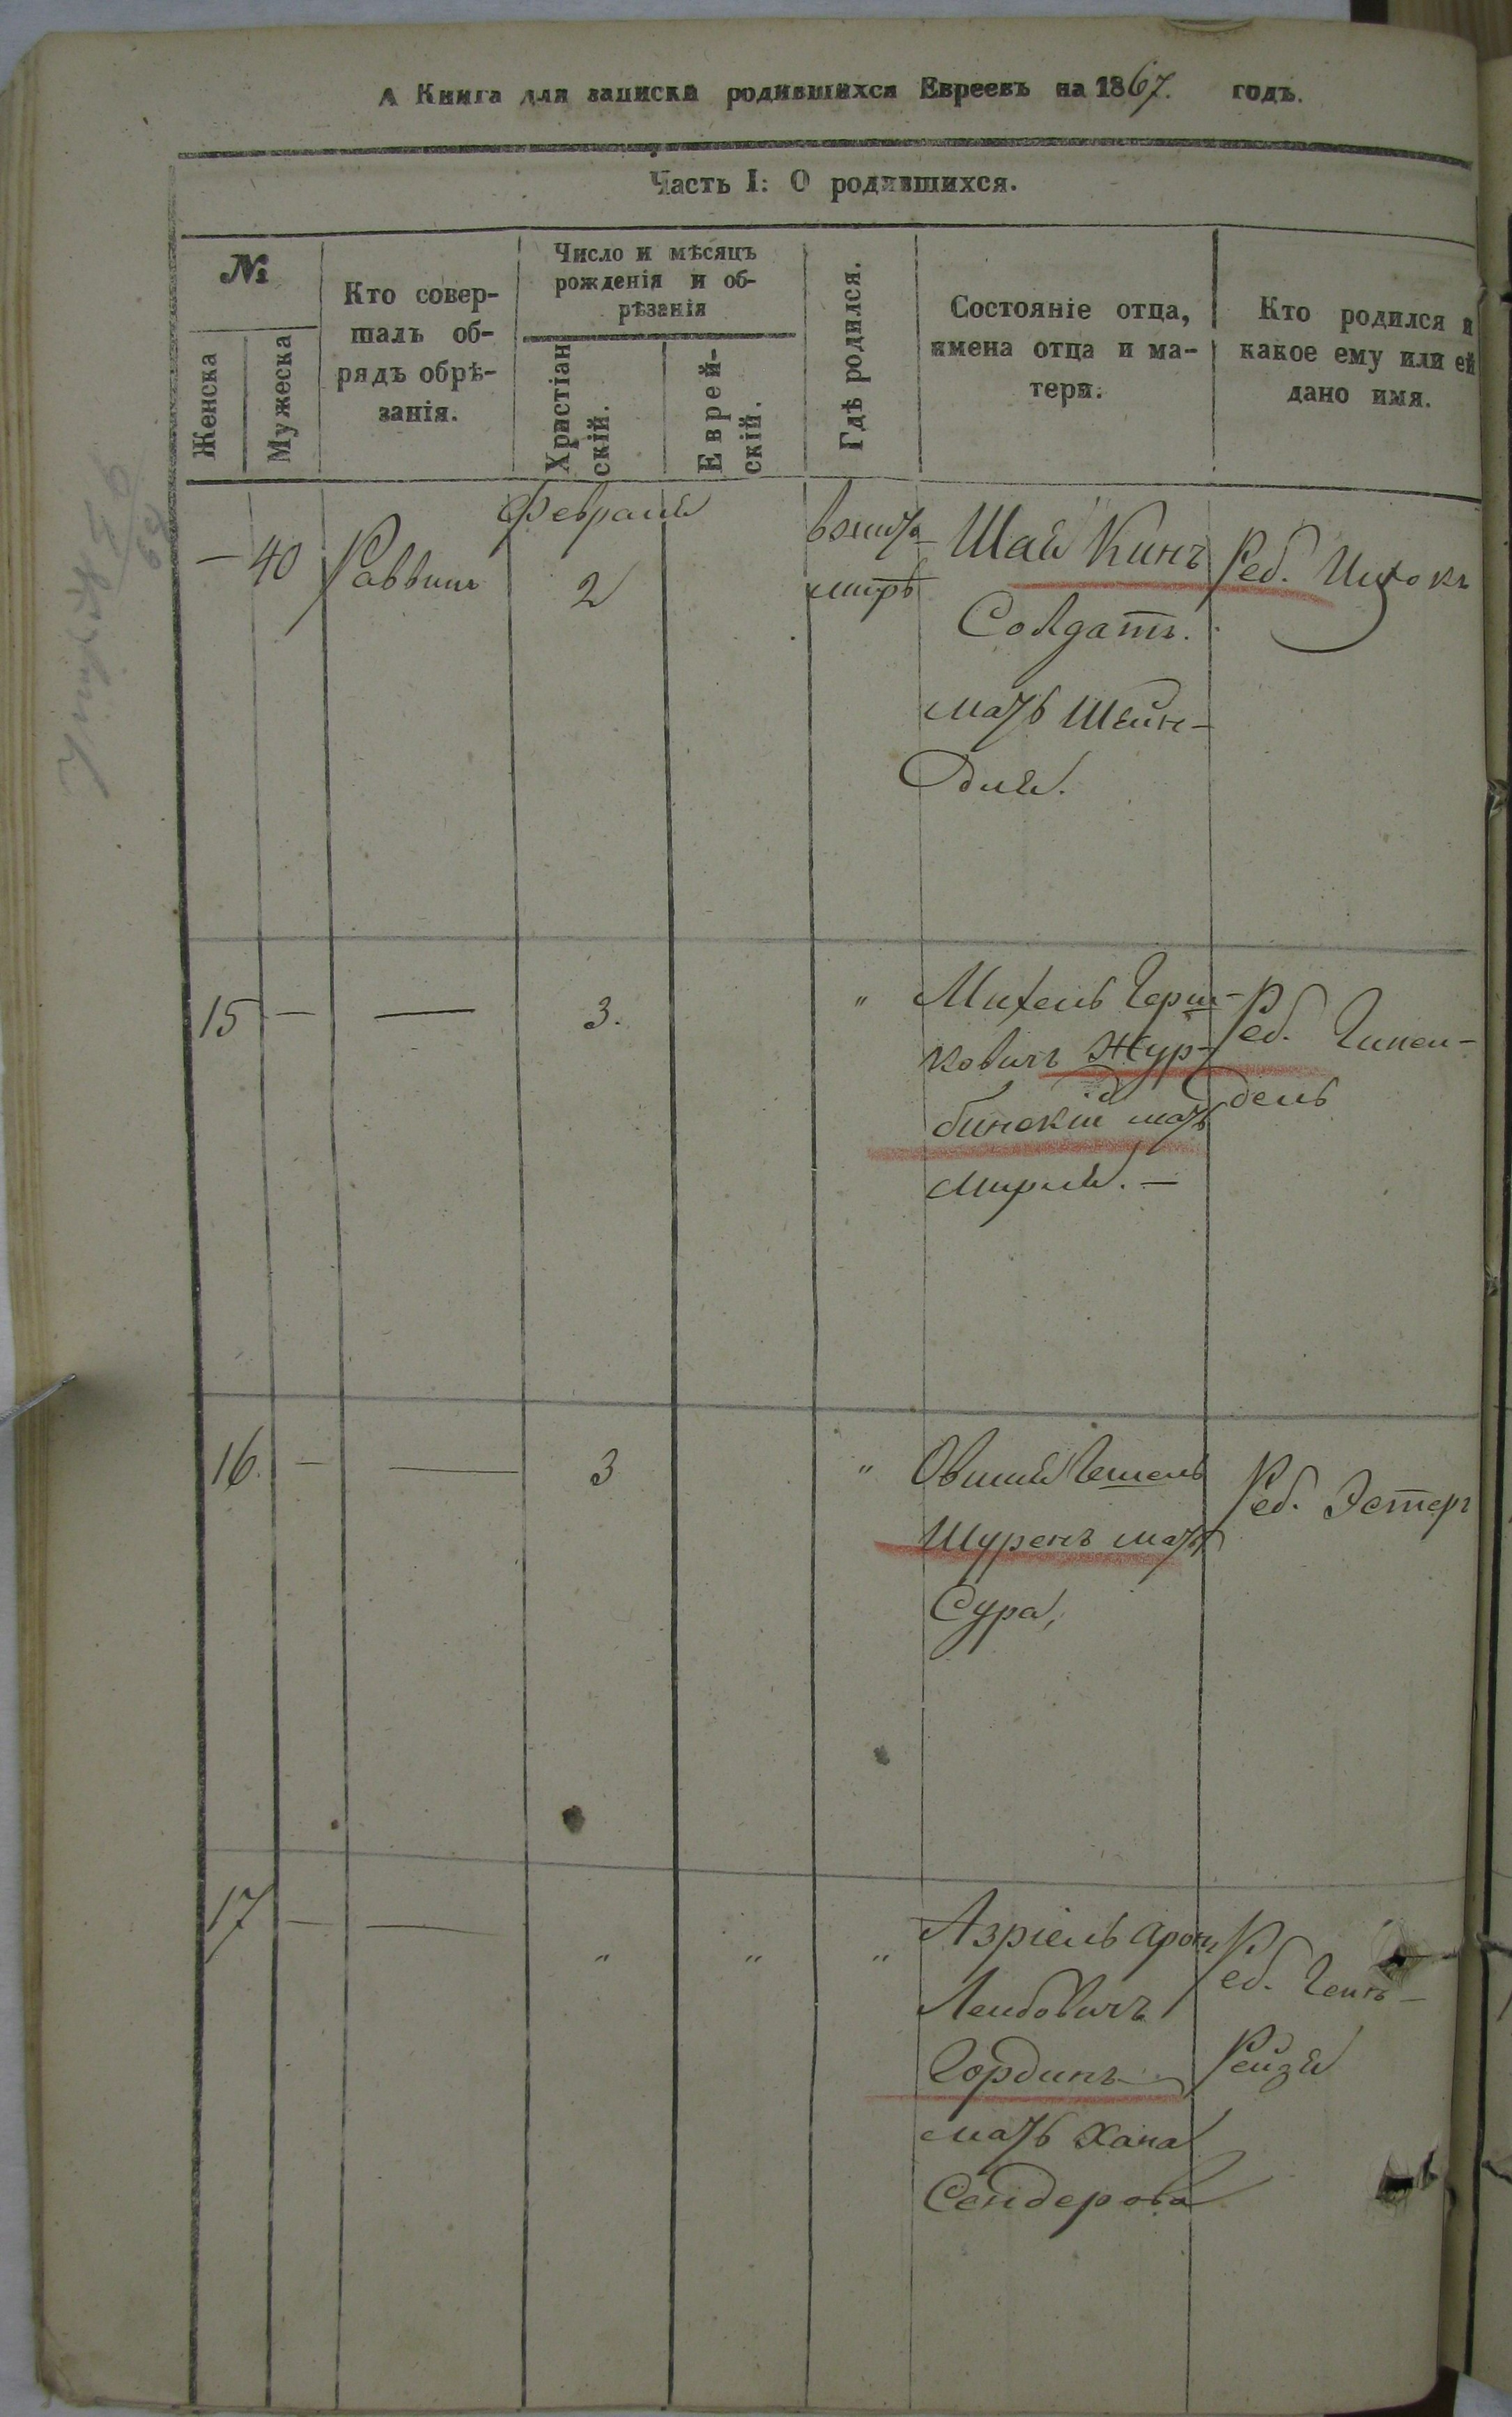 А Книга для записки родившихся Евреевъ на 1867. годъ.
Часть I: О родившихся.
№
Женска
Мужеска
Кто совер-
шалъ об-
рядъ обрѣ-
занія.
Число и мѣсяцъ
рожденія и об-
рѣзанія
Христіан
скій.
Еврей-
скій.
Гдѣ родился.
Состояніе отца,
имена отца и ма-
тери.
Кто родился и
какое ему или ей
дано имя.
Февраля
— 40
Раввинъ
2
вжито
мирѣ
Шая Кинъ
Солдатъ.
мать Шейн-
для.
Реб. Ицхокъ
15 — —
3.
"
Михель Герш-
ковичъ Жур-
бинскій мать
Мирля. —
Реб.
дель
16. — —
3
"
Овшия Гешель
Шуренъ мать
Сура,
Реб. Эстеръ
17 — —
" " "
Азріель Аронъ
Лейбовичъ
Гординъ
мать Хана
Сендерова
Реб. Гень-
Рейзя